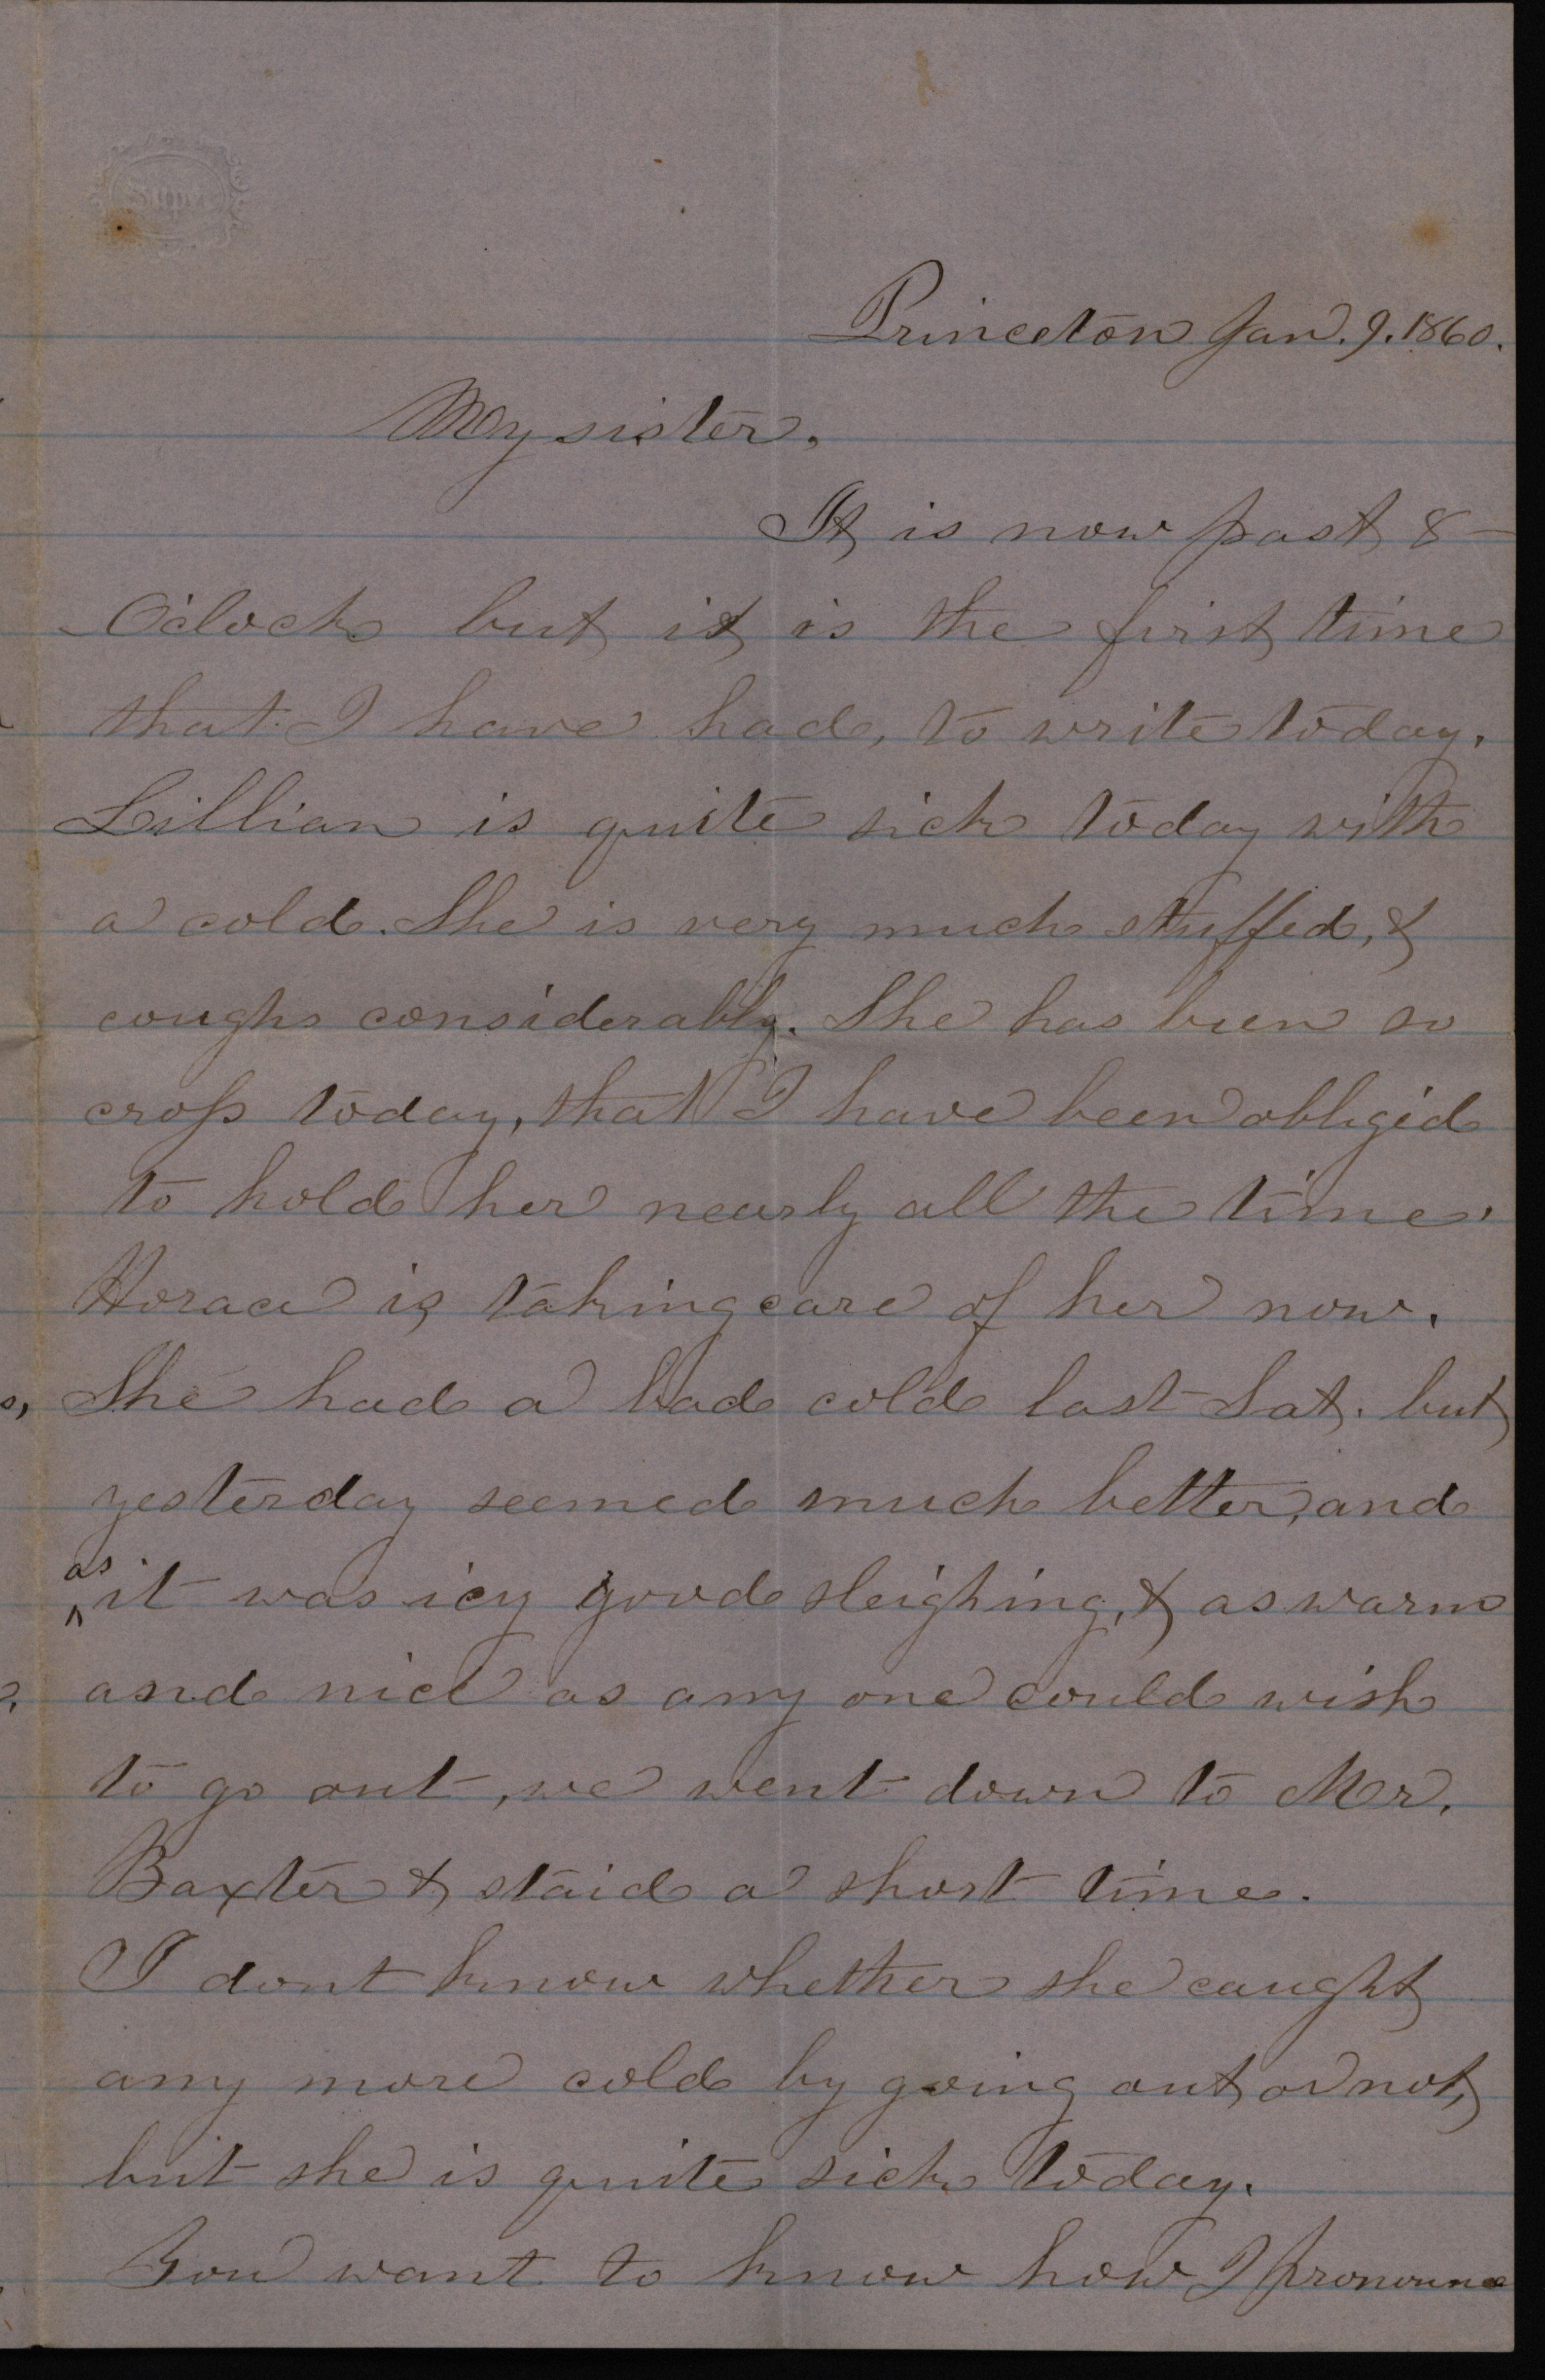 Super
Princeton Jan. 9. 1860.
My sister,
It is now past 8-
O'clock but it is the first time
that I have had, to write today.
Lillian is quite sick today with
a cold. She is very much stuffed, &
coughs considerably. She has been so
cross today, that I have been obligid
to hold her nearly all the time.
Horace is taking care of her now.
She had a bad cold last Sat. but
yesterday seemed much better, and
as
^it was icy good sleighing, & as warm
and nice as any one could wish
to go out, we went down to Mr.
Baxter & staid a short time.
I dont know whether she caught
any more cold by going out or not,
but she is quite sick today.
You want to know how I pronounce